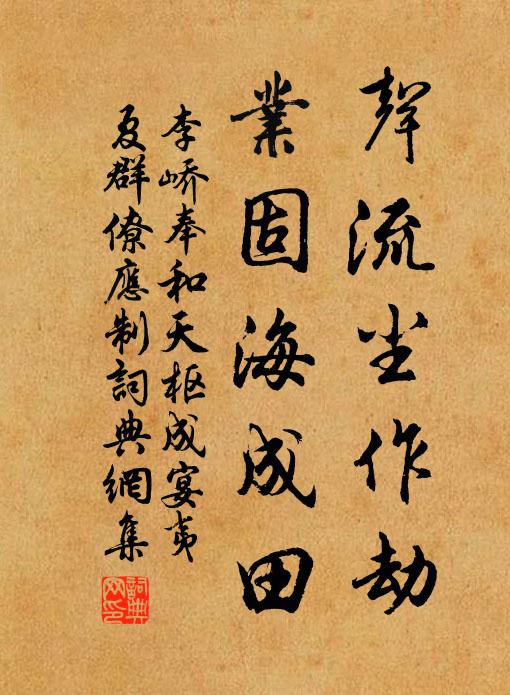 聲流尘作劫
業固海成田
李峤奉和天枢成宴夷
夏群僚應制詞典網集
詞典网印